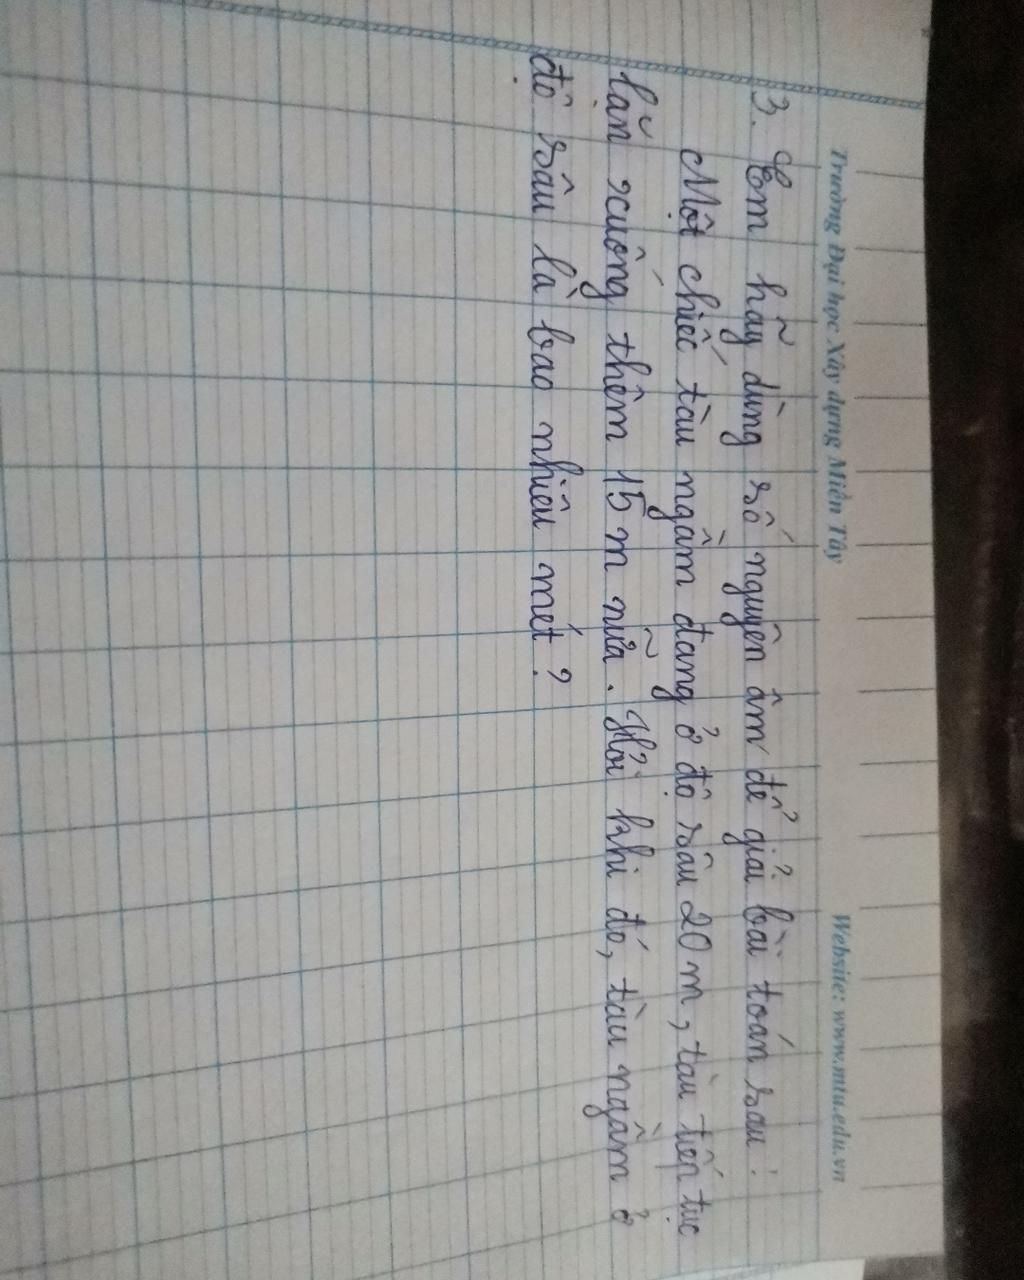 Trường Đại học Xây dựng Miền Tây Website: www.mtu.edu.vn
3. Em hãy dùng số nguyên âm để giải bài toán sau:
Một chiếc tàu ngầm đang ở độ sâu 20 m, tàu tiếp tục
lặn xuống thêm 15 m nữa. Hỏi khi đó, tàu ngầm ở
độ sâu là bao nhiêu mét?